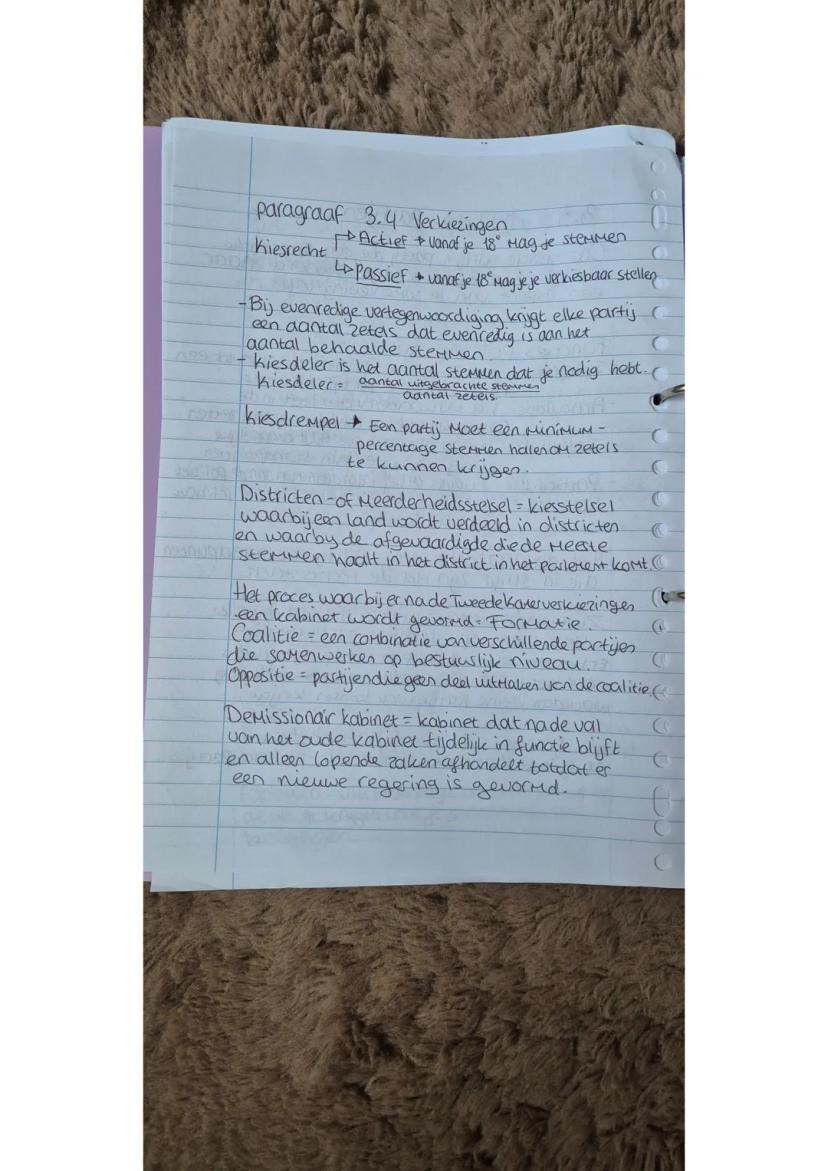 paragraaf 3.4 Verkiezingen
Kiesrecht ↱ Actief → vanaf je 18e mag je stemmen
↳ Passief → vanaf je 18e mag je je verkiesbaar stellen
- Bij evenredige vertegenwoordiging krijgt elke partij
een aantal zetels dat evenredig is aan het
aantal behaalde stemmen.
- Kiesdeler is het aantal stemmen dat je nodig hebt.
Kiesdeler = aantal uitgebrachte stemmen
aantal zetels
Kiesdrempel → Een partij moet een minimum-
percentage stemmen halen om zetels
te kunnen krijgen.
Districten- of meerderheidsstelsel = kiesstelsel
waarbij een land wordt verdeeld in districten
en waarby de afgevaardigde die de meeste
stemmen haalt in het district in het parlement komt.
Het proces waarbij er na de Tweede Kamerverkiezingen
een kabinet wordt gevormd = Formatie.
Coalitie = een combinatie van verschillende partijen
die samenwerken op bestuurlijk niveau.
Oppositie = partijen die geen deel uitmaken van de coalitie.
Demissionair kabinet = kabinet dat na de val
van het oude kabinet tijdelijk in functie blijft
en alleen lopende zaken afhandelt totdat er
een nieuwe regering is gevormd.